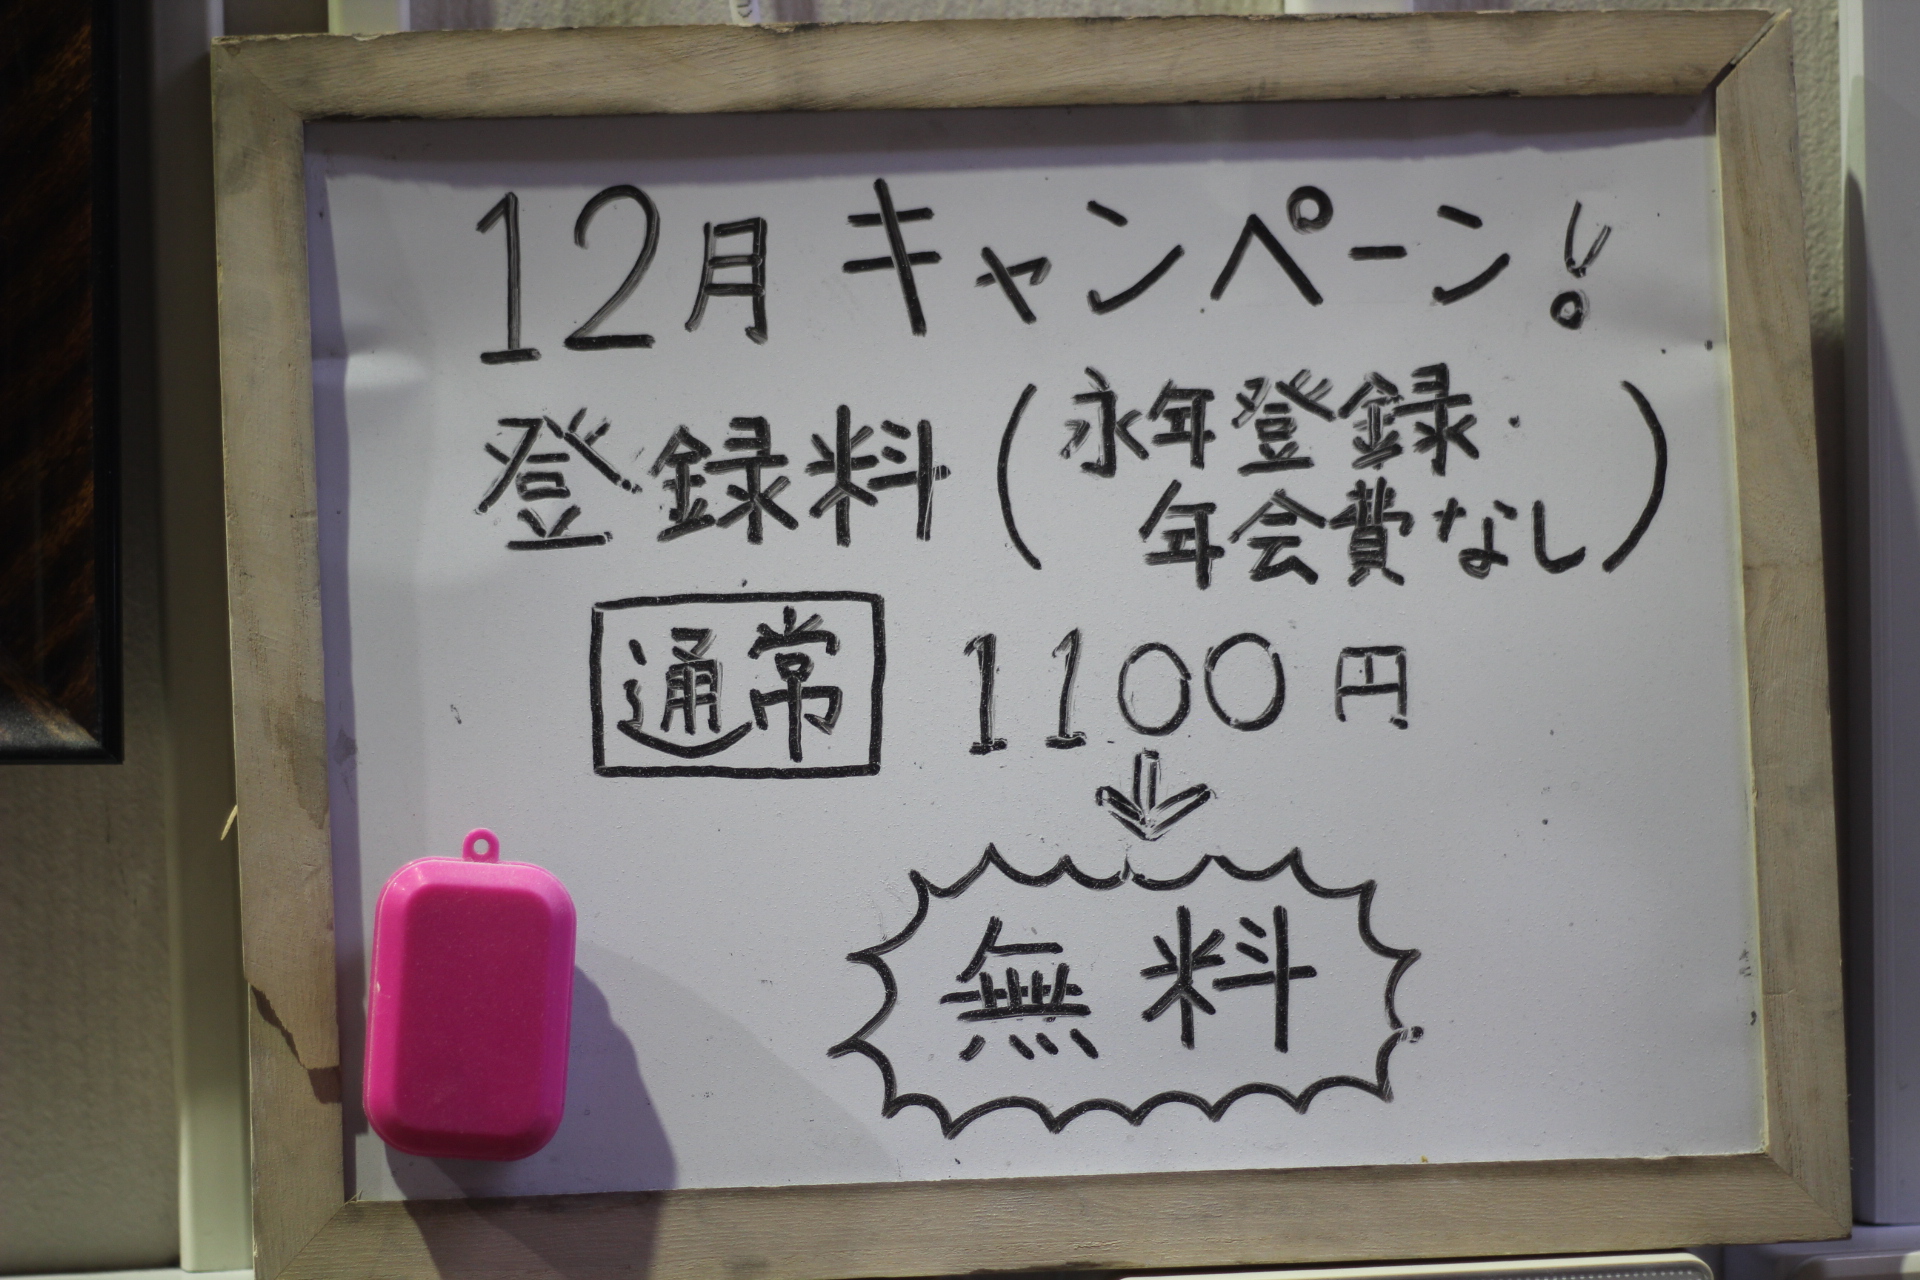 12月 キャンペーン!
登録料(永年登録・
年会費なし)
通常 1100円
↓
無料